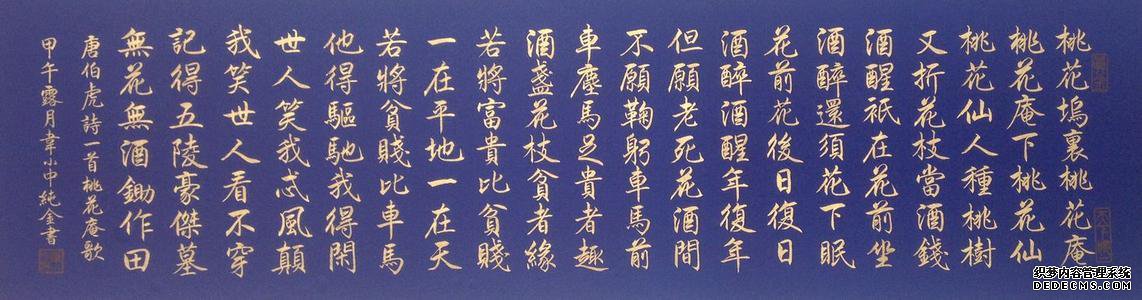 桃花塢裏桃花庵
桃花庵下桃花仙
桃花仙人種桃樹
又折花枝當酒錢
酒醒衹在花前坐
酒醉還須花下眠
花前花後日復日
酒醉酒醒年復年
不願鞠躬車馬前
但願老死花酒間
車塵馬足貴者趣
酒盞花枝貧者緣
若將富貴比貧賤
一在平地一在天
若將貧賤比車馬
他得驅馳我得閑
世人笑我忒風顛
我笑世人看不穿
記得五陵豪傑墓
無花無酒鋤作田
唐伯虎詩一首桃花庵歌
甲午露月韋小中純金書
织梦内容管理系统
DEDECMS.COM